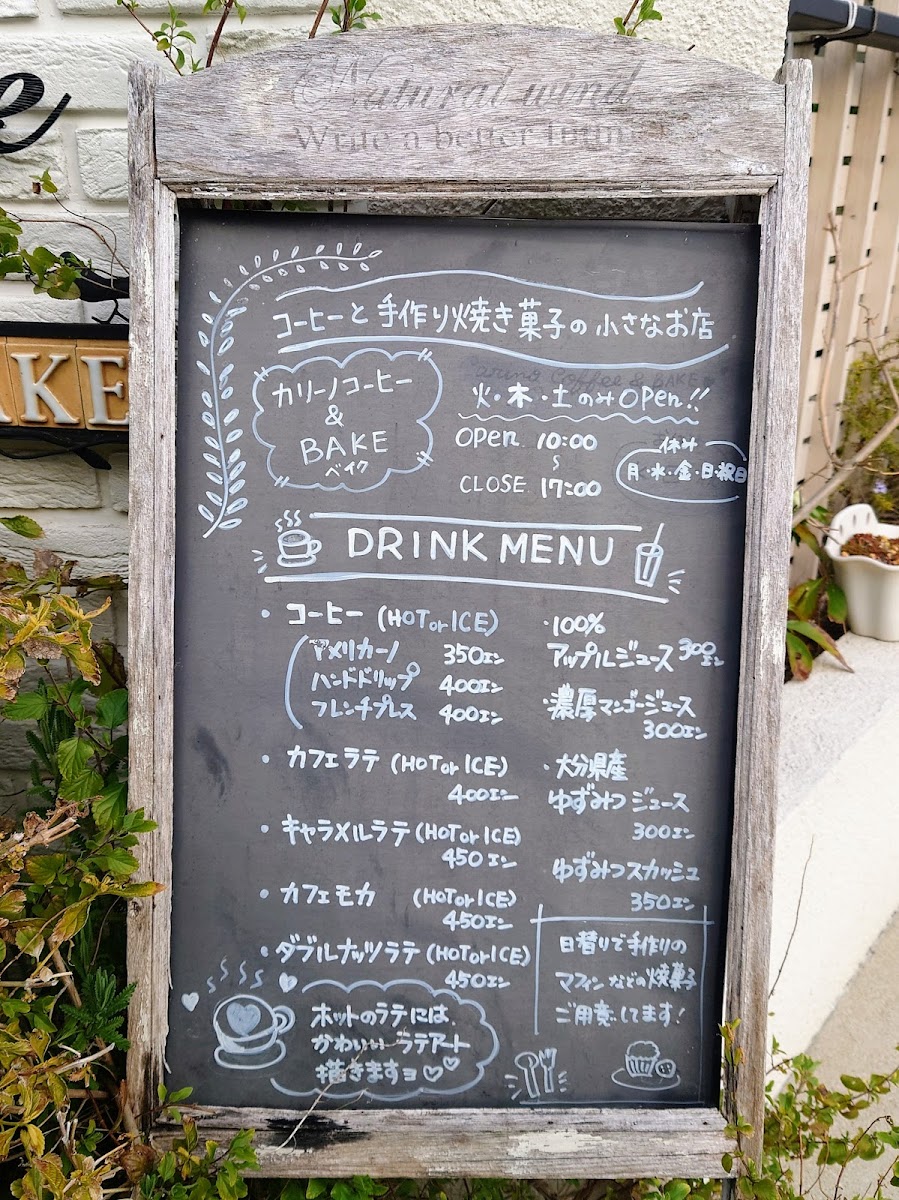 Natural wind
Write a better
e
AKE
コーヒーと手作り焼き菓子の小さなお店
カリーノコーヒー
&
BAKE
ベイク
Coffee & BAKE
火・木・土のみOPen!!
OPen 10:00
〜
CLOSE 17:00
休み
月・水・金・日・祝日
DRINK MENU
・コーヒー (HOT or ICE)
アメリカーノ 350エン
ハンドドリップ 400エン
フレンチプレス 400エン
・カフェラテ (HOT or ICE)
400エン
・キャラメルラテ (HOT or ICE)
450エン
・カフェモカ (HOT or ICE)
450エン
・ダブルナッツラテ (HOT or ICE)
450エン
ホットのラテには、
かわいい ラテアート
描きますョ♡♡
・100%
アップルジュース 300エン
・濃厚マンゴージュース
300エン
・大分県産
ゆずみつジュース
300エン
ゆずみつスカッシュ
350エン
日替りで手作りの
マフィンなどの焼菓子
ご用意してます!